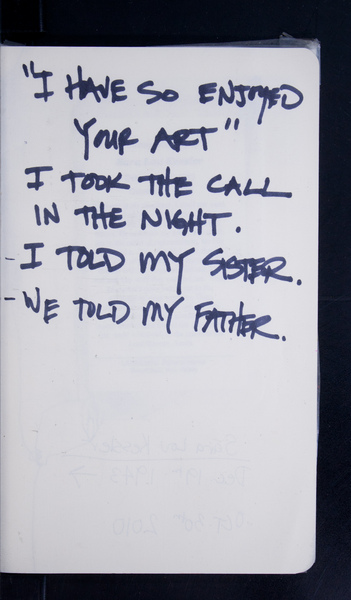 "I HAVE SO ENJOYED
YOUR ART"
I TOOK THE CALL
IN THE NIGHT.
- I TOLD MY SISTER.
- WE TOLD MY FATHER.